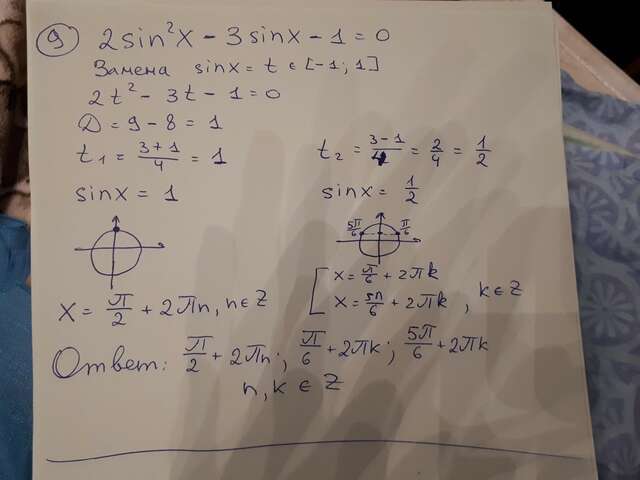 9 2sin²x - 3sinx - 1 = 0
Замена sinx = t ∈ [-1; 1]
2t² - 3t - 1 = 0
D = 9 - 8 = 1
t₁ = (3+1)/4 = 1 t₂ = (3-1)/4 = 2/4 = 1/2
sinx = 1 sinx = 1/2
5π/6 π/6
x = π/2 + 2πn, n ∈ Z [ x = π/6 + 2πk
x = 5π/6 + 2πk, k ∈ Z
Ответ: π/2 + 2πn; π/6 + 2πk; 5π/6 + 2πk
n, k ∈ Z